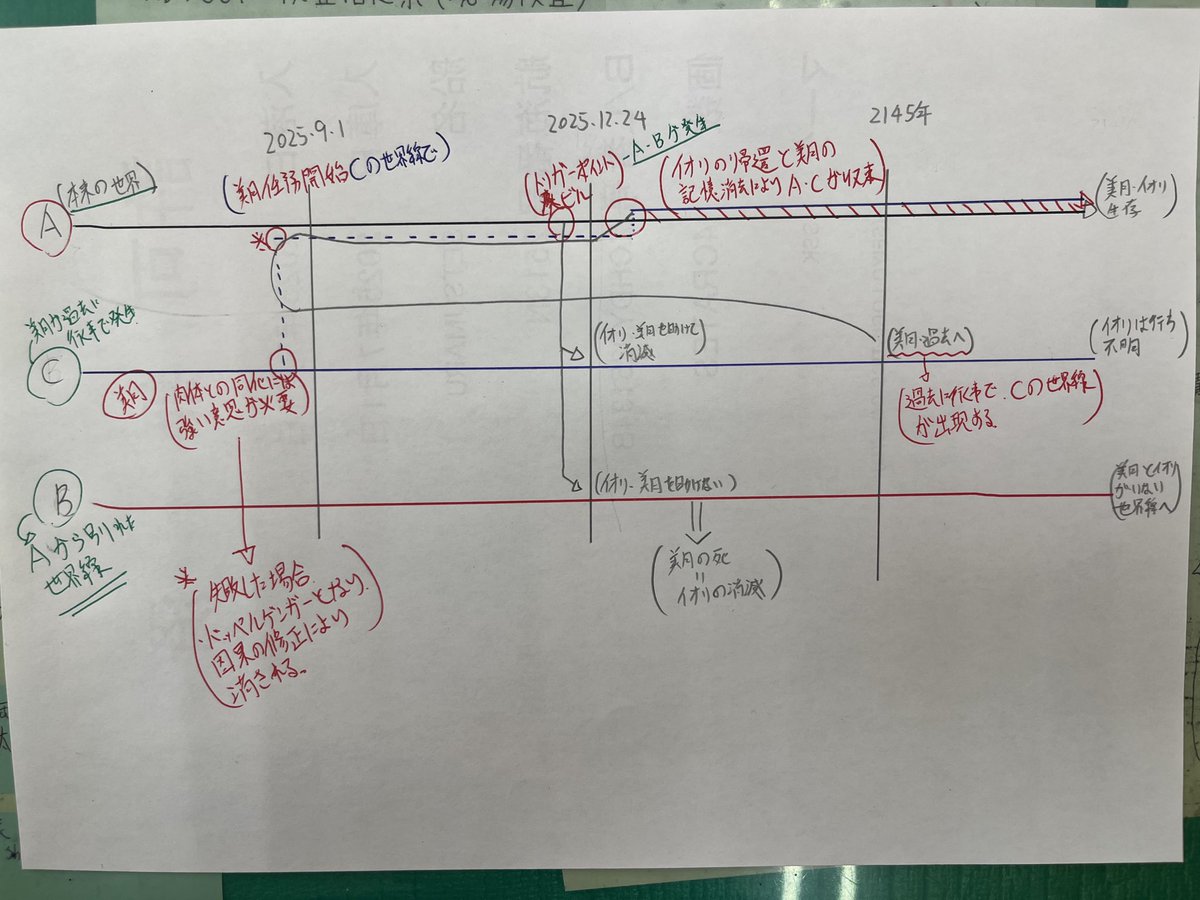 2025.9.1
2025.12.24
2145年
(本来の世界)
A
(美月任務開始Cの世界線で)
(トリガーポイント)
ビル
A・B分発生
(イオリの帰還と美月の
記憶消去によりA・Cが収束)
(美月・イオリ
生存)
※
美月が過去に
行く事で発生
C
美月
(肉体との同化には
強い意思が必要)
(イオリ・美月を助けて
消滅)
(美月・過去へ)
(イオリは行方
不明)
(過去に行く事で、Cの世界線
が出現する)
B
Aから別れた
世界線
(イオリ・美月を助けない)
(美月とイオリ
がいない
世界線へ)
(美月の死
=
イオリの消滅)
※
(失敗した場合
・ドッペルゲンガーとなり、
因果の修正により
消される。)